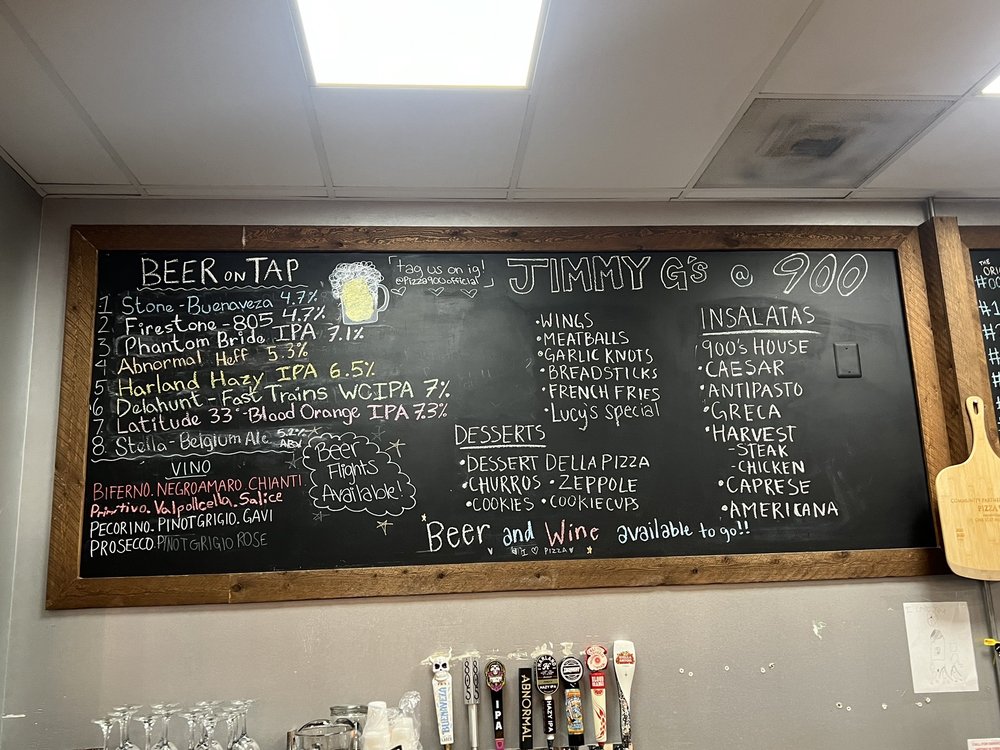 BEER ON TAP
1 Stone-Buenaveza 4.7%
2. Firestone-805 4.7%
3 Phantom Bride IPA 7.1%
4 Abnormal Heff 5.3%
5 Harland Hazy IPA 6.5%
6 Delahunt-Fast Trains WCIPA 7%
7 Latitude 33° Blood Orange IPA 7.3%
8. Stella-Belgium Ale 5.2% ABV
VINO
BIFERNO. NEGROAMARO. CHIANTI
Primitivo. Valpolicella. Salice
PECORINO. PINOT GRIGIO. GAVI
PROSECCO. PINOT GRIGIO ROSE
Beer
Flights
Available!
tag us on ig!
@pizza900official
JIMMY G's @ 900
•WINGS
•MEATBALLS
•GARLIC KNOTS
•BREADSTICKS
•FRENCH FRIES
•Lucy's special
DESSERTS
•DESSERT DELLA PIZZA
•CHURROS • ZEPPOLE
•COOKIES • COOKIE CUPS
INSALATAS
900's HOUSE
•CAESAR
•ANTIPASTO
•GRECA
•HARVEST
-STEAK
-CHICKEN
•CAPRESE
•AMERICANA
Beer and Wine available to go!!
I ♡ PIZZA
THE
#
#1
#
#
#
PIZZA
BUENAVEZA
805
IPA
ABNORMAL
HAZY IPA